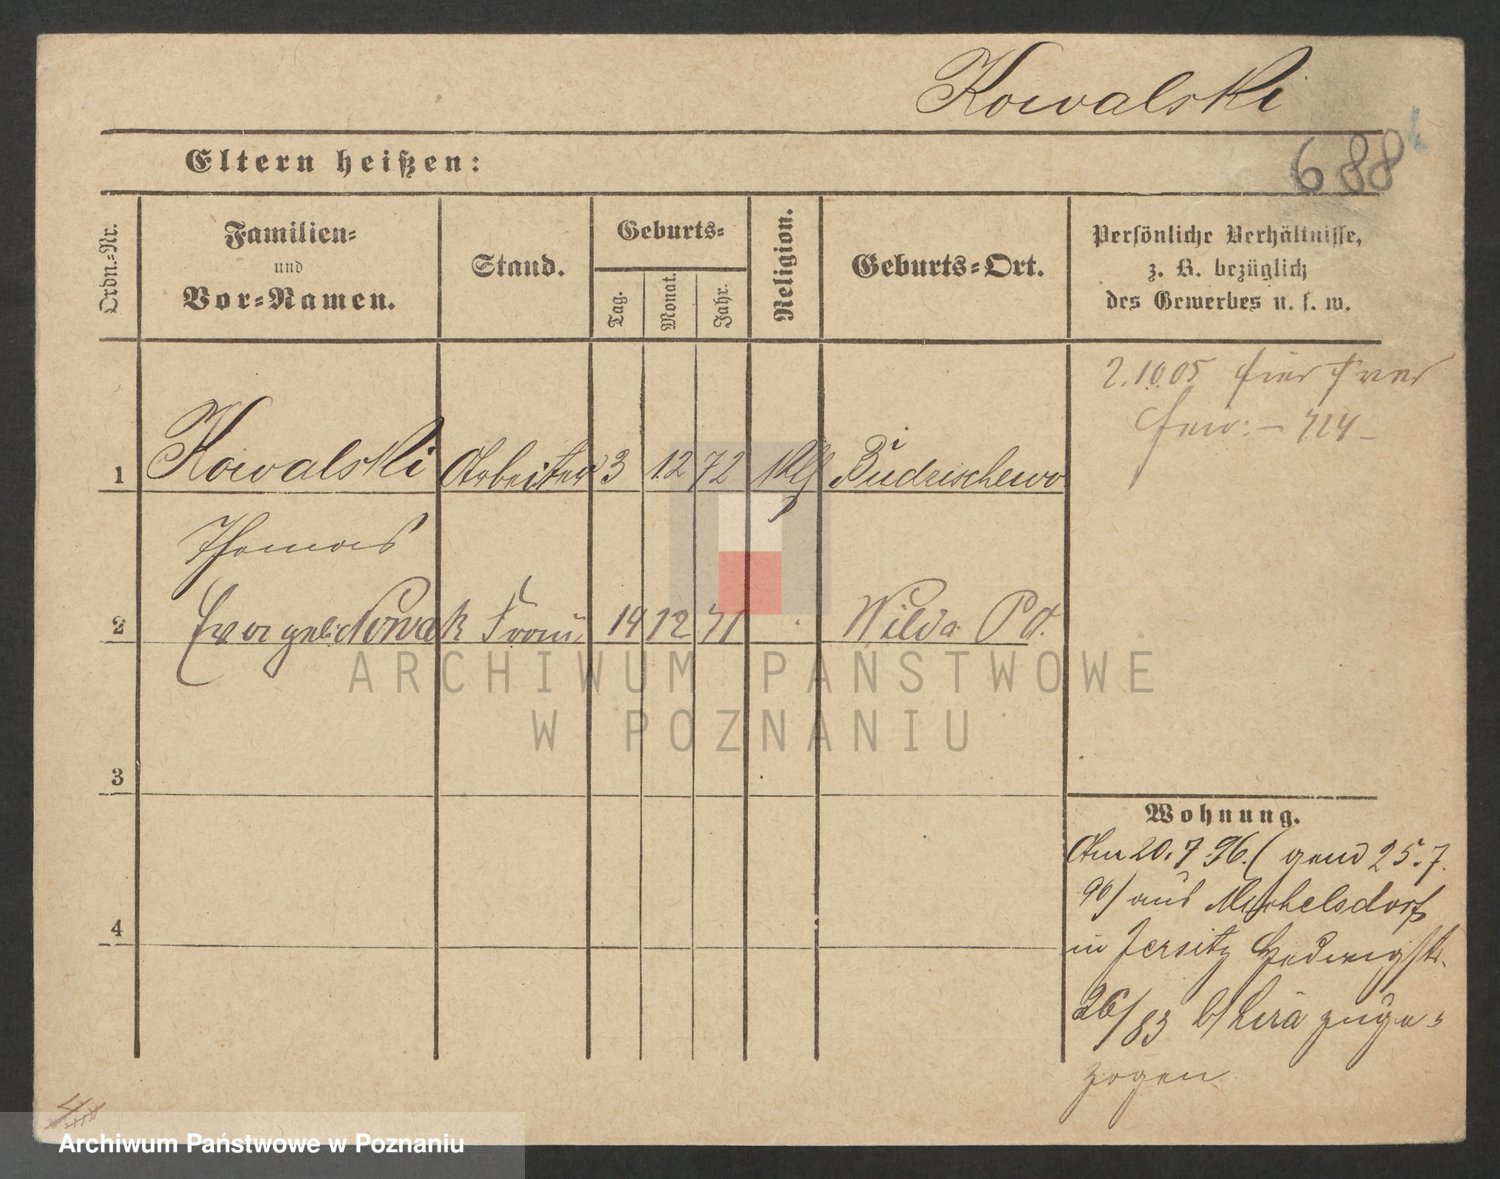 Kowalski
688
Eltern heißen:
Ordn.-Nr.
Familien-
und
Vor-Namen.
Stand.
Geburts-
Tag.
Monat.
Jahr.
Religion.
Geburts-Ort.
Persönliche Verhältnisse,
z. B. bezüglich
des Gewerbes u. s. w.
2.10.05
1 Kowalski Arbeiter 3 12 72 Budzischewo
Thomas
2 geb. Nowak Frau 14 12 71 Wilda Pd.
3
4
Wohnung.
Am 20.7.96. ( gem 25.7.
96) aus Michelsdorf
in Jersitz Hedwigstr.
26/83 b/ zuge-
zogen
ARCHIWUM PAŃSTWOWE
W POZNANIU
Archiwum Państwowe w Poznaniu